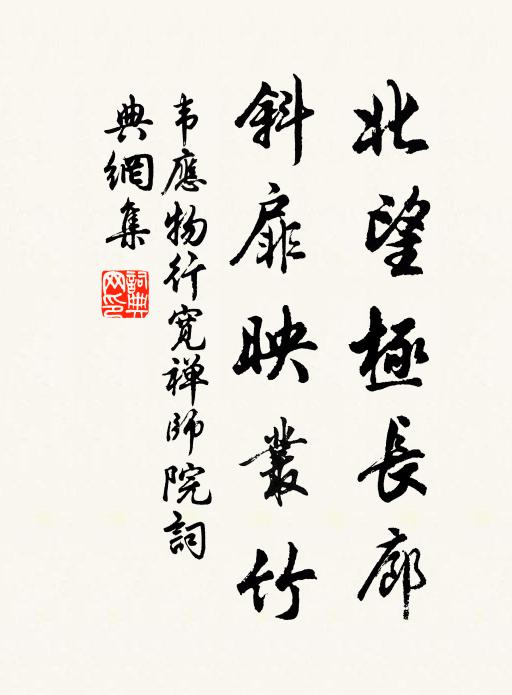 北望極長廊
斜扉映叢竹
韋應物行寬禪師院詞
典網集
詞典
网印